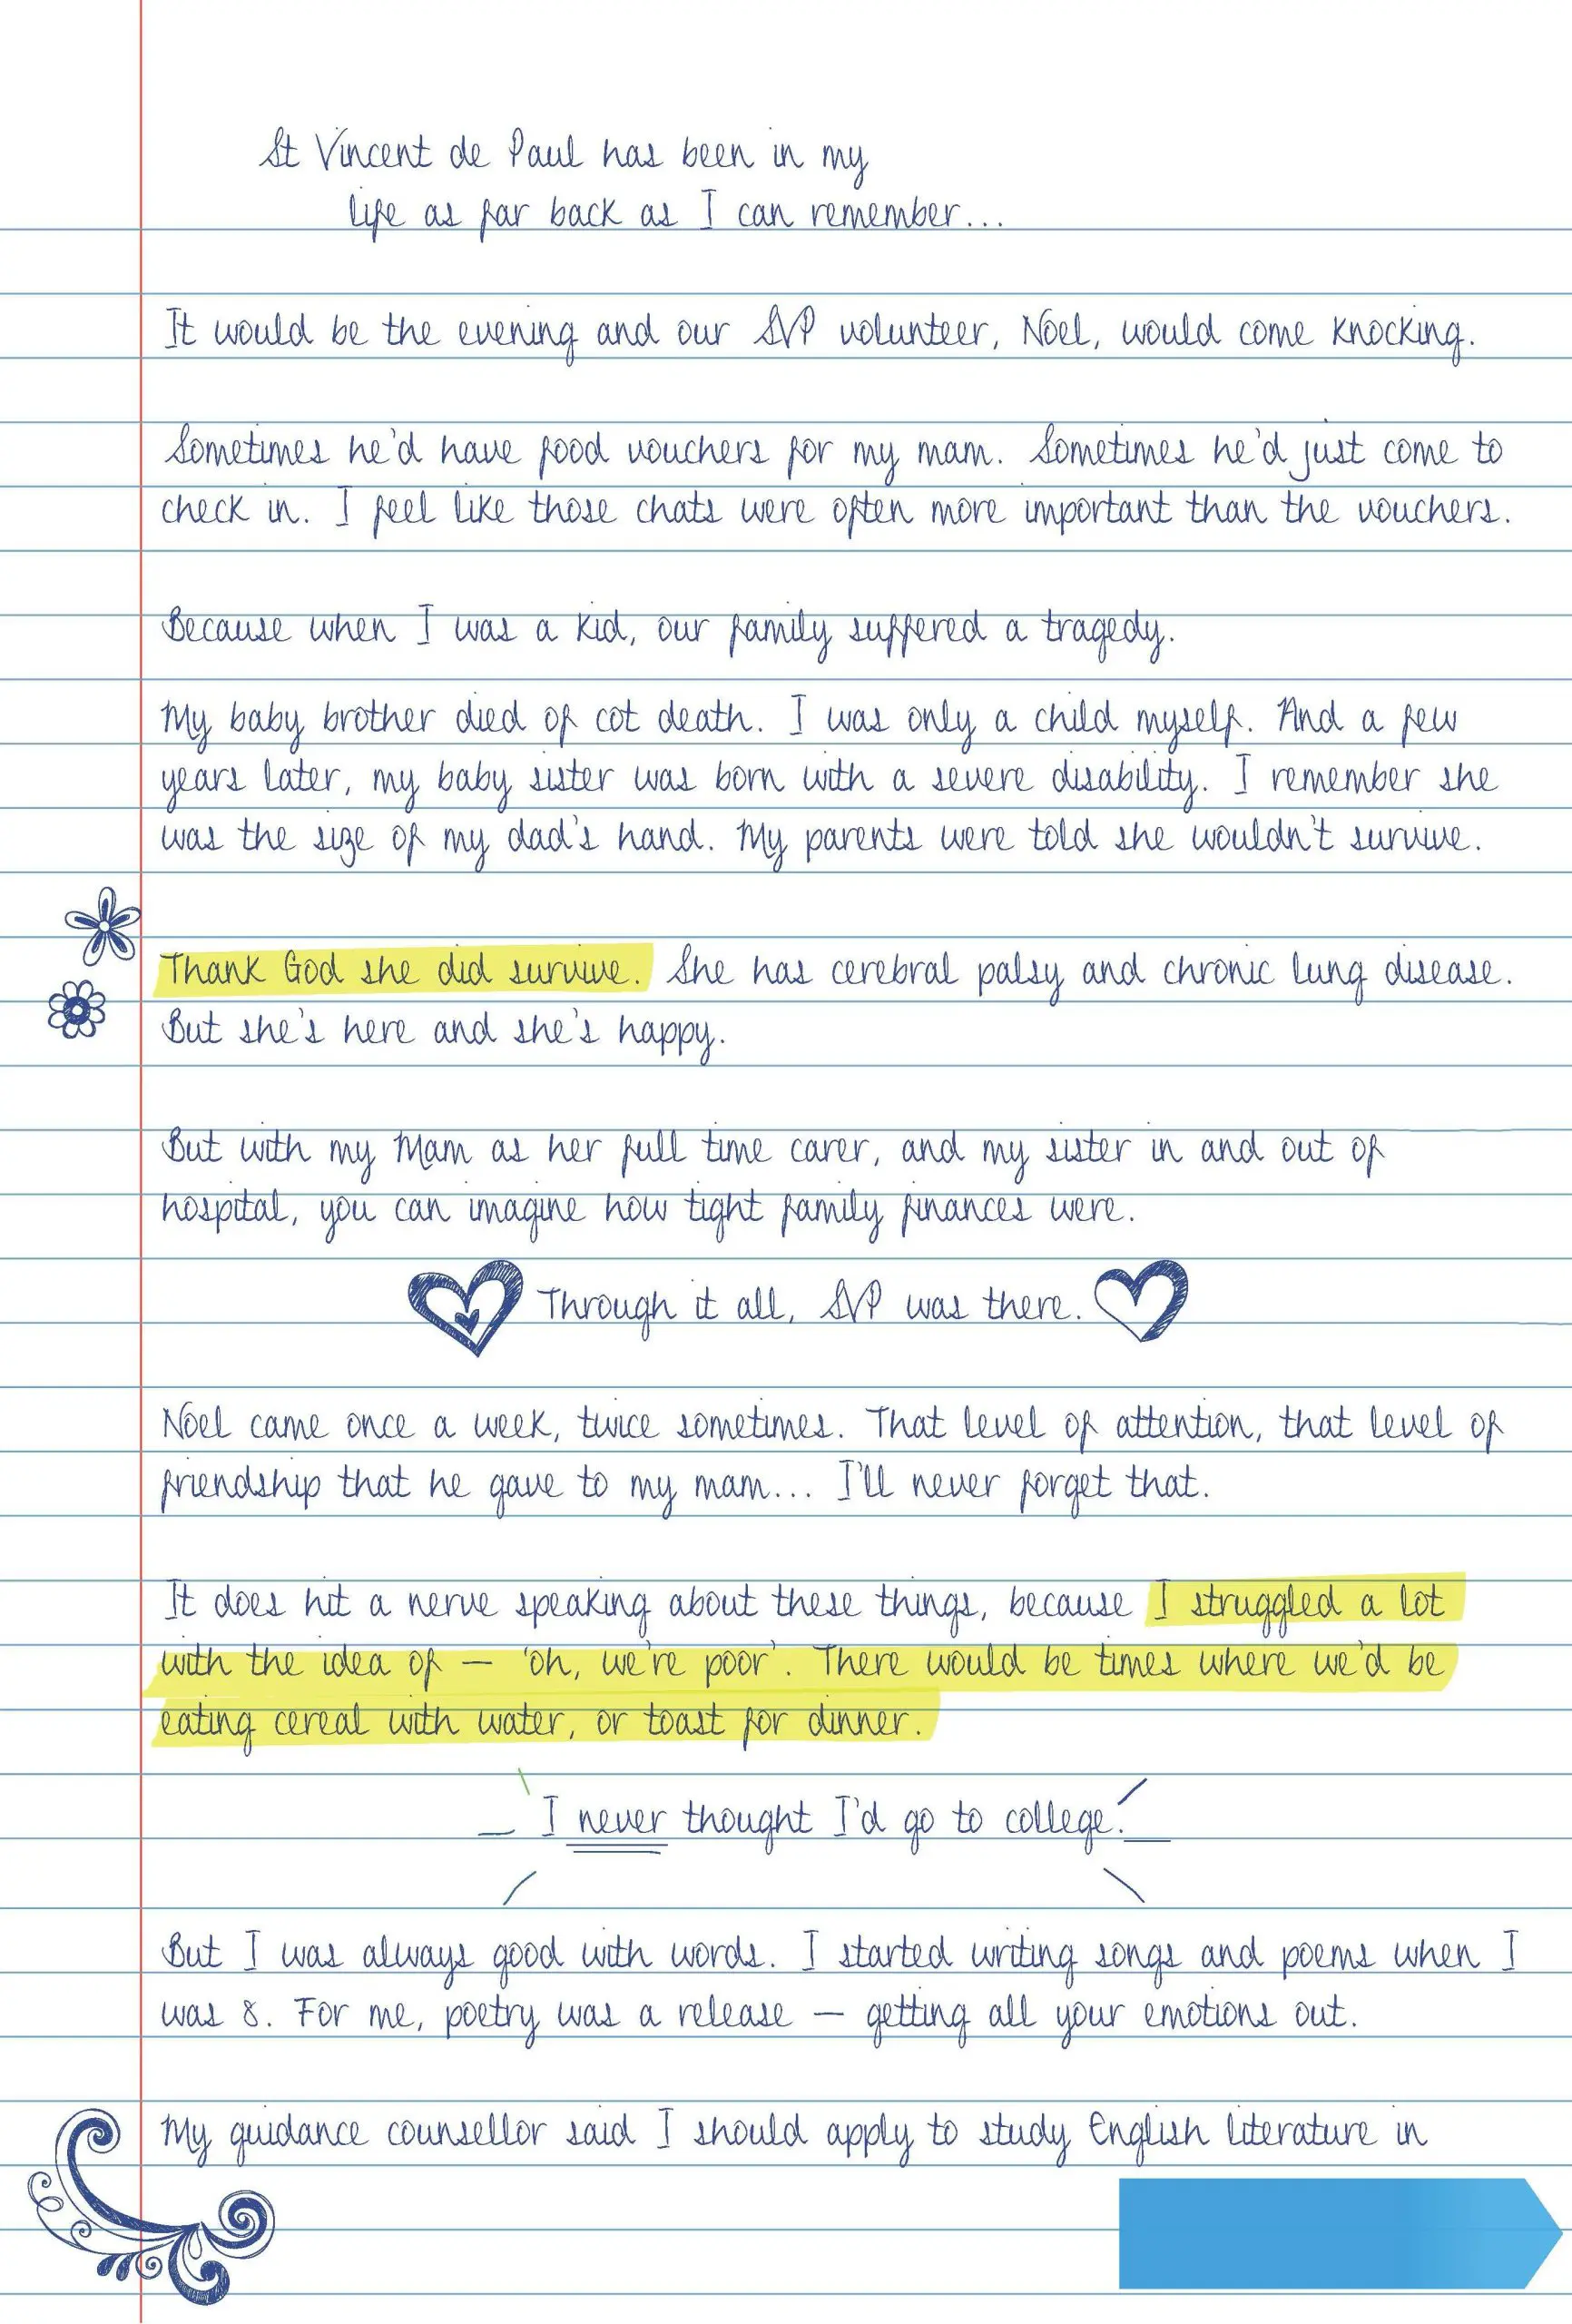 St Vincent de Paul has been in my
life as far back as I can remember...
It would be the evening and our SVP volunteer, Noel, would come knocking.
Sometimes he'd have food vouchers for my mam. Sometimes he'd just come to
check in. I feel like those chats were often more important than the vouchers.
Because when I was a kid, our family suffered a tragedy.
My baby brother died of cot death. I was only a child myself. And a few
years later, my baby sister was born with a severe disability. I remember she
was the size of my dad's hand. My parents were told she wouldn't survive.
Thank God she did survive. She has cerebral palsy and chronic lung disease.
But she's here and she's happy.
But with my Mam as her full time carer, and my sister in and out of
hospital, you can imagine how tight family finances were.
Through it all, SVP was there.
Noel came once a week, twice sometimes. That level of attention, that level of
friendship that he gave to my mam... I'll never forget that.
It does hit a nerve speaking about these things, because I struggled a lot
with the idea of – 'oh, we're poor'. There would be times where we'd be
eating cereal with water, or toast for dinner.
I never thought I'd go to college.
But I was always good with words. I started writing songs and poems when I
was 8. For me, poetry was a release – getting all your emotions out.
My guidance counsellor said I should apply to study English literature in